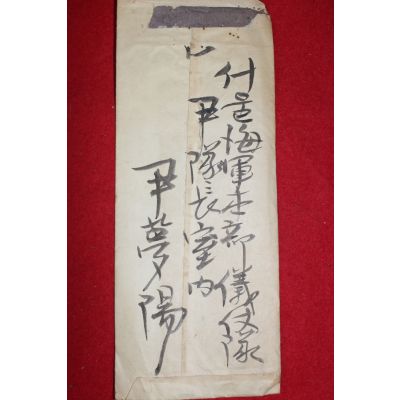 서울海軍本部儀仗隊
尹隊長室內
尹夢陽